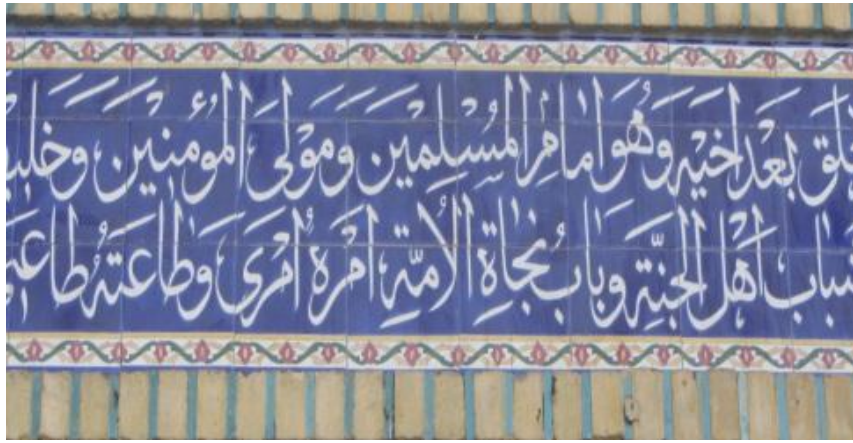 خلق بعد اخیه وهو امام المسلمین ومولی المؤمنین
شباب اهل الجنة وباب نجاة الأمة امره امری وطاعته